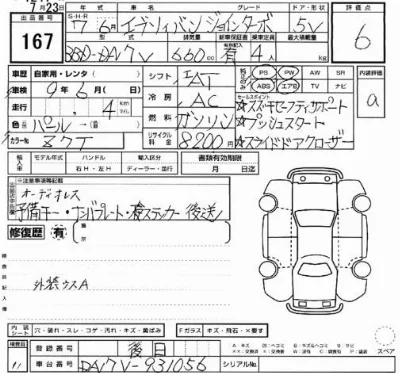 7月23日
出品番号 167
年式 車名 グレード ドア・形状 評価点
S・H・R 7 6月 エブリィバン ジョインターボ 5V 6
型式 排気量 車歴 乗車定員 最大積載量
3BD-DA17V 660cc 有 4人
車歴 自家用・レンタ シフト IAT PS PW AW SR 内装評価
車検 9年6月 日 冷房 AC ABS エアB TV ナビ a
走行 4 km 燃料 ガソリン セールスポイント
☆スズキセーフティサポート
色 パール リサイクル料金 8200円 ☆プッシュスタート
カラーNo. Z7T ☆スライドドアクローザー
輸入車 モデル年式 ハンドル 輸入区分 書類有効期限
年 右H・左H ディーラー・並行 月 日迄
※注意事項等記載
オーディオレス
予備キー・ナンバープレート・検ステッカー後送
修復歴 有
外装ウスA
内装シート 穴・破れ・スレ・コゲ・汚れ・キズ・黄ばみ Fガラス キズ・飛石・×要す
スペア
検査員 登録番号 後日
車台番号 DA17V-931056 シリアルNo.